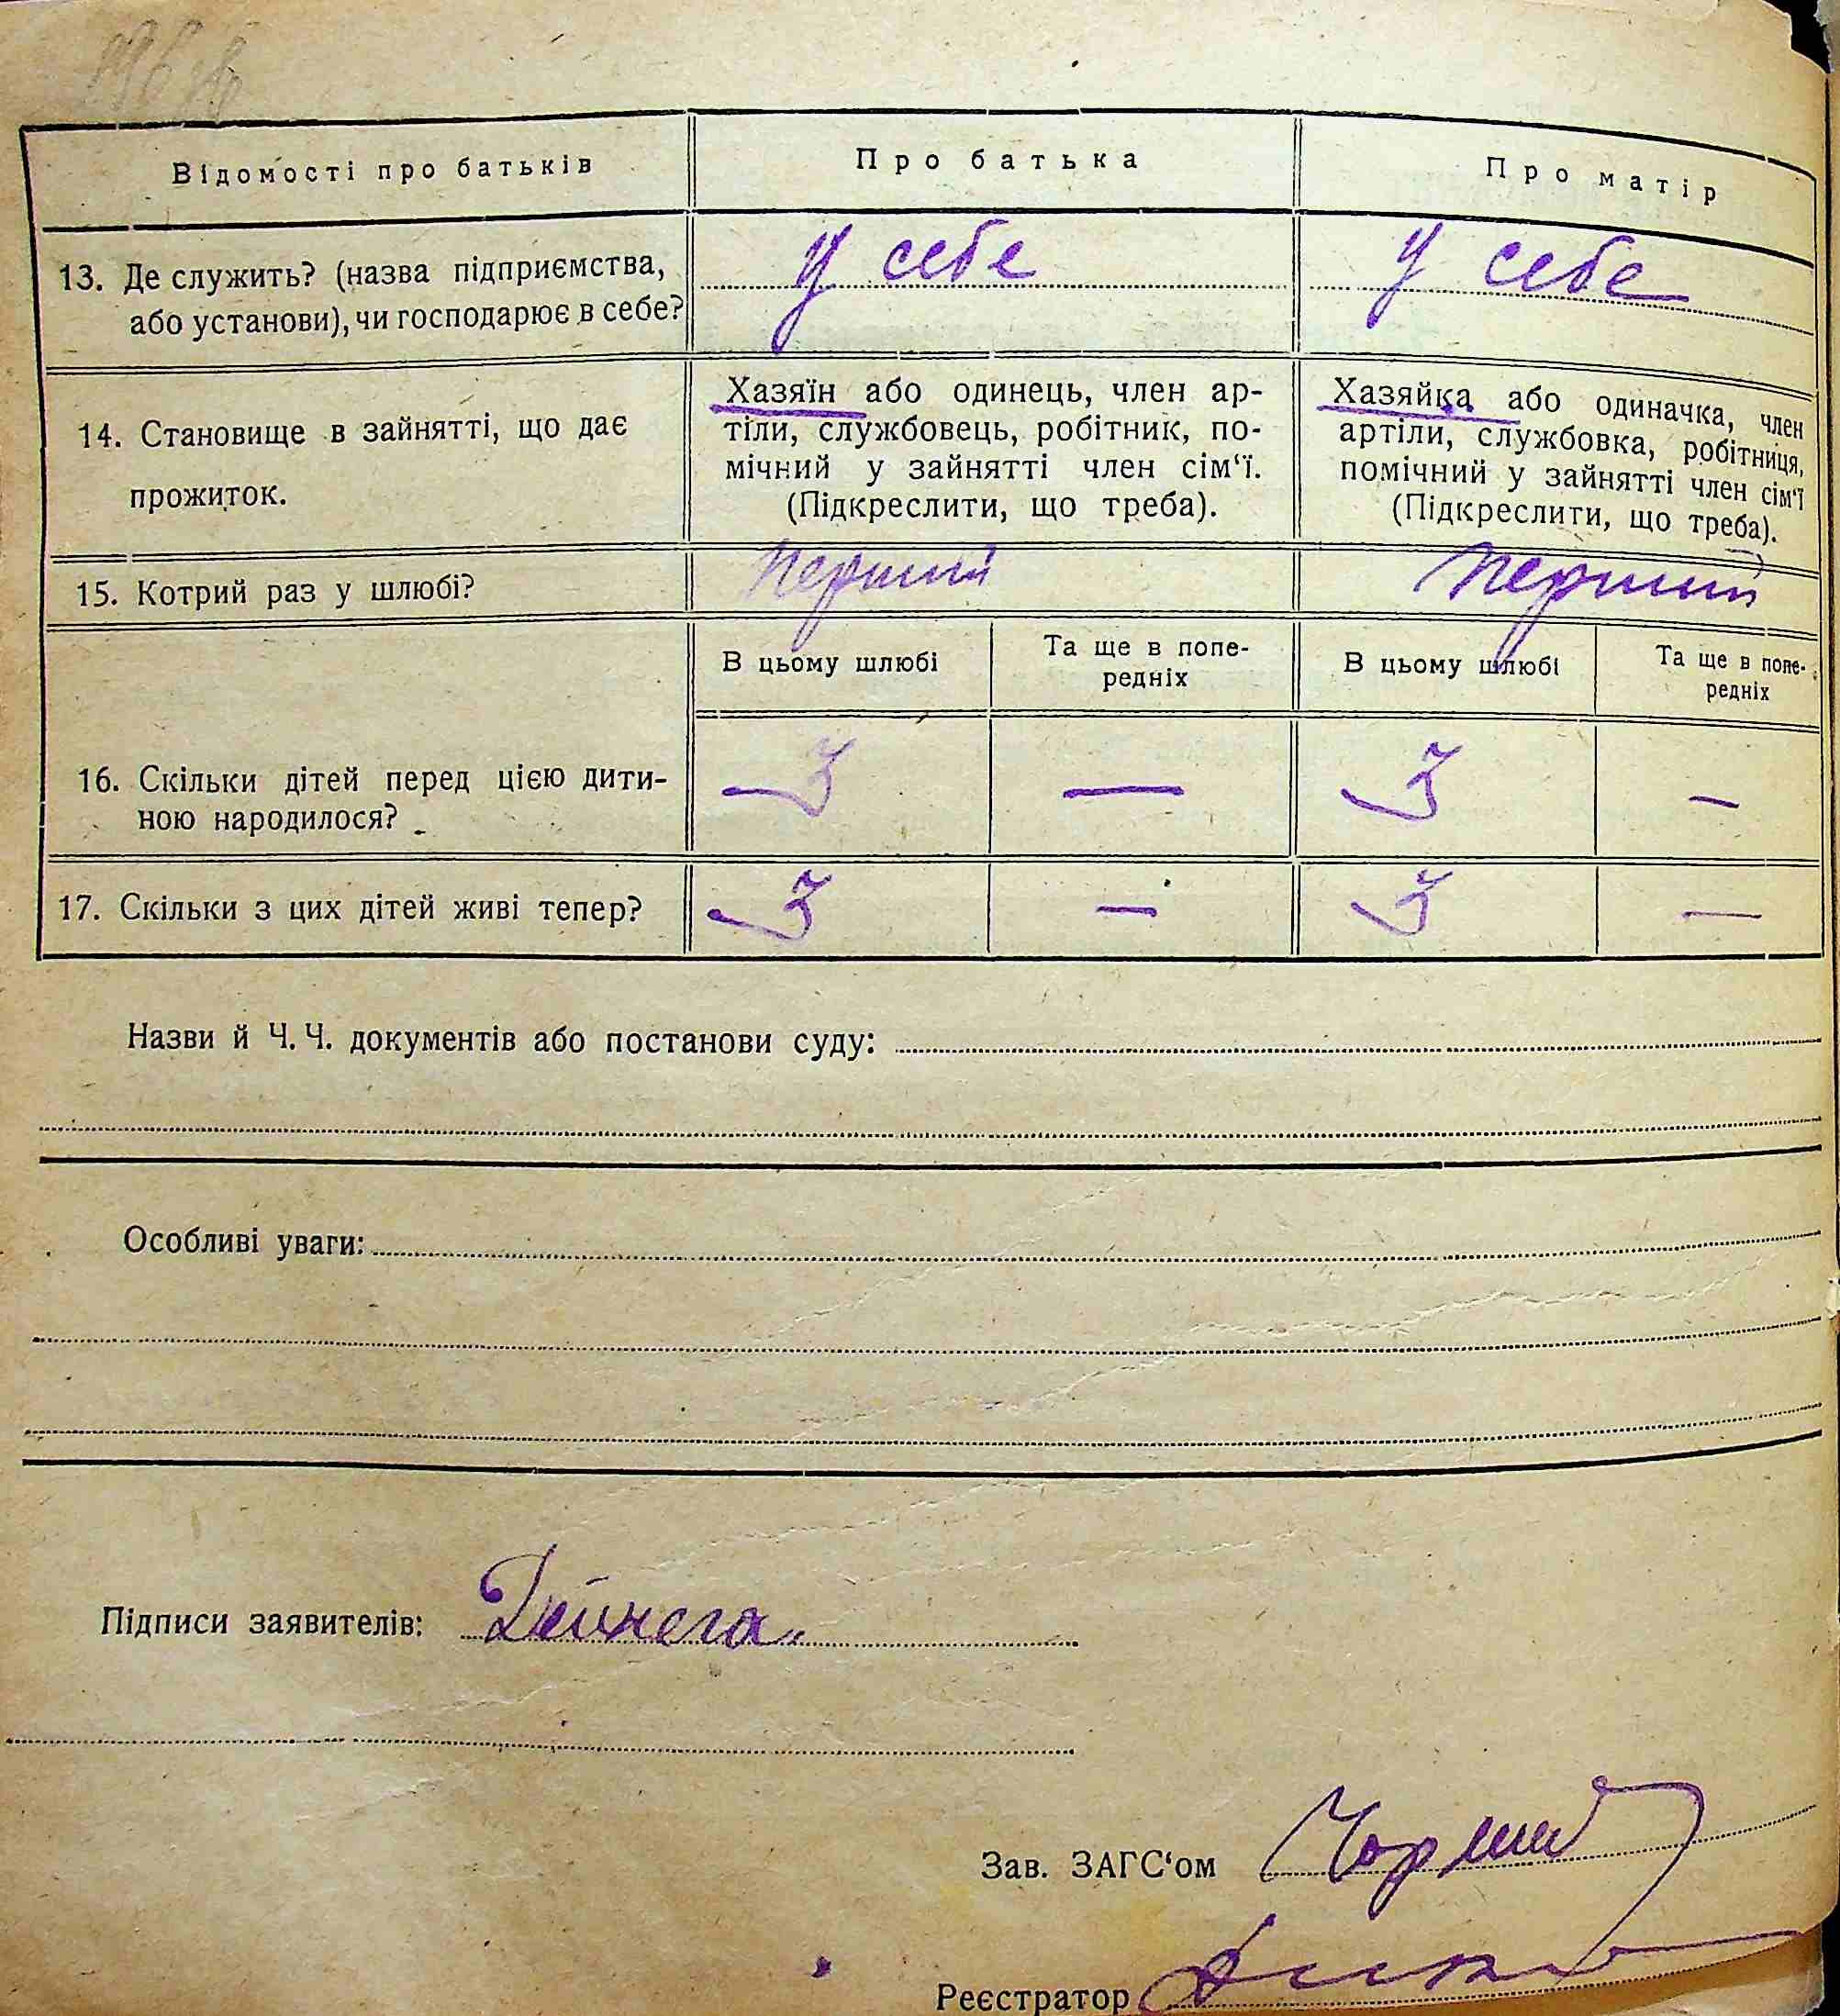 Відомості про батьків
Про батька
Про матір
13. Де служить? (назва підприємства,
або установи), чи господарює в себе?
у себе
у себе
14. Становище в зайнятті, що дає
прожиток.
Хазяїн або одинець, член ар-
тіли, службовець, робітник, по-
мічний у зайнятті член сім‘ї.
(Підкреслити, що треба).
Хазяйка або одиначка, член
артіли, службовка, робітниця,
помічний у зайнятті член сім‘ї
(Підкреслити, що треба).
15. Котрий раз у шлюбі?
перший
перший
В цьому шлюбі
Та ще в попе-
редніх
В цьому шлюбі
Та ще в попе-
редніх
16. Скільки дітей перед цією дити-
ною народилося?
3
—
3
—
17. Скільки з цих дітей живі тепер?
3
—
3
—
Назви й Ч. Ч. документів або постанови суду:
Особливі уваги:
Підписи заявителів: Дейнега.
Зав. ЗАГС‘ом
Реєстратор